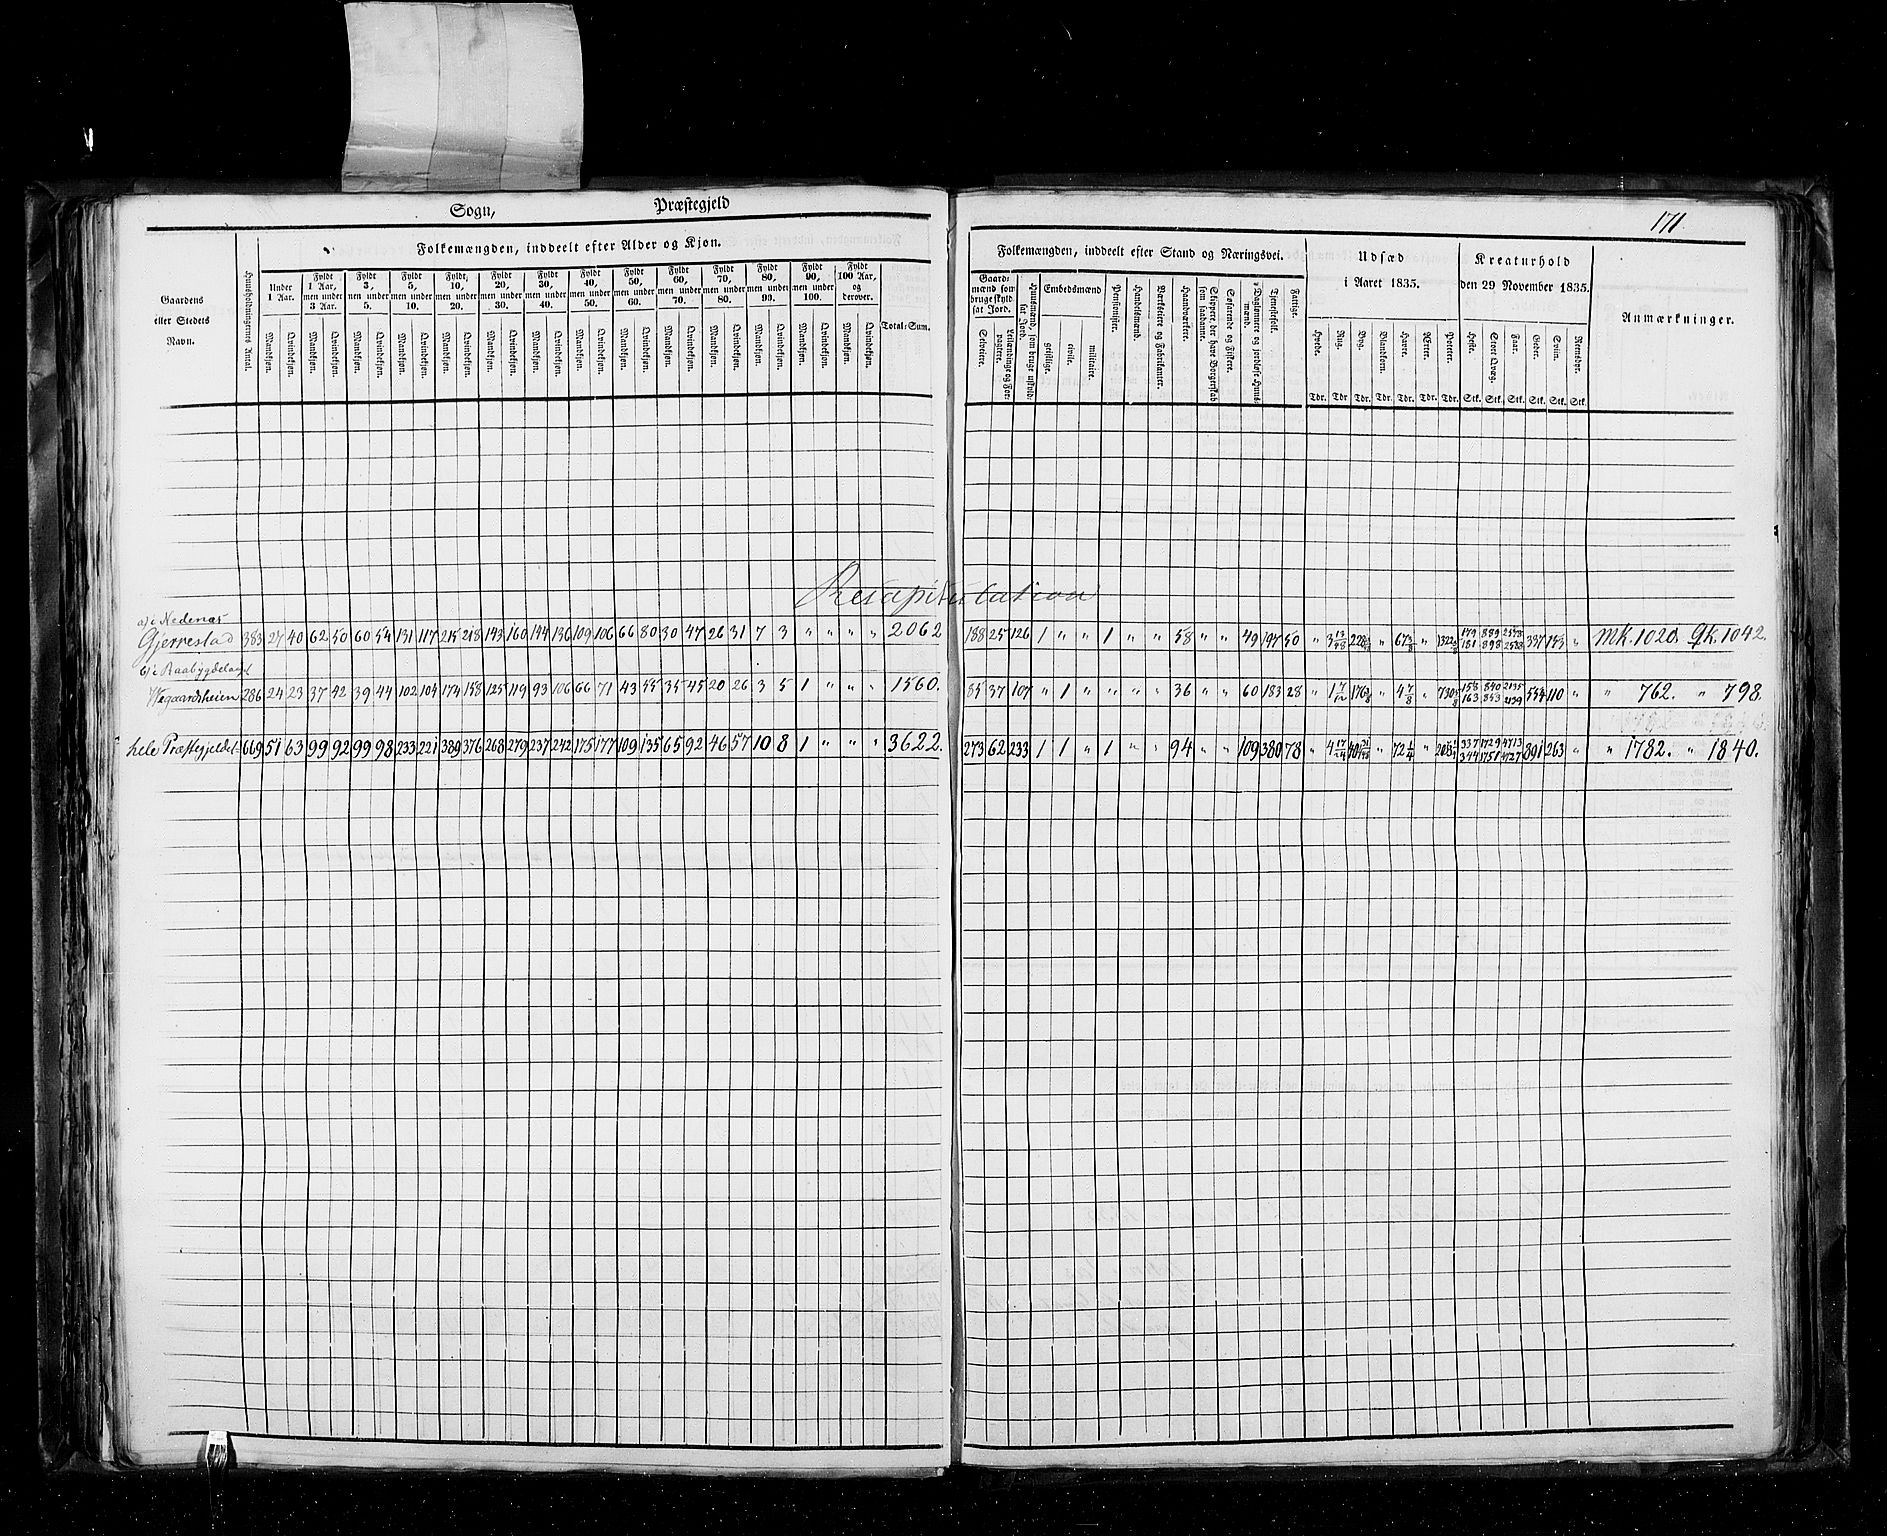 Sogn, Præstegjeld
171.
Folkemængden, inddeelt efter Alder og Kjøn.
Folkemængden, inddeelt efter Stand og Næringsvei.
Udsæd i Aaret 1835.
Kreaturhold den 29 November 1835.
Anmærkninger.
Gaardens eller Stedets Navn.
Huusholdningernes Antal.
Under 1 Aar.
Fyldt 1 Aar, men under 3 Aar.
Fyldt 3, men under 5.
Fyldt 5, men under 10.
Fyldt 10, men under 20.
Fyldt 20, men under 30.
Fyldt 30, men under 40.
Fyldt 40, men under 50.
Fyldt 50, men under 60.
Fyldt 60, men under 70.
Fyldt 70, men under 80.
Fyldt 80, men under 90.
Fyldt 90, men under 100.
Fyldt 100 Aar, og derover.
Mandkjøn. Qvindekjøn. Mandkjøn. Qvindekjøn. Mandkjøn. Qvindekjøn. Mandkjøn. Qvindekjøn. Mandkjøn. Qvindekjøn. Mandkjøn. Qvindekjøn. Mandkjøn. Qvindekjøn. Mandkjøn. Qvindekjøn. Mandkjøn. Qvindekjøn. Mandkjøn. Qvindekjøn. Mandkjøn. Qvindekjøn. Mandkjøn. Qvindekjøn. Mandkjøn. Qvindekjøn. Mandkjøn. Qvindekjøn.
Total-Sum.
Gaardmænd som bruge skyldsat Jord.
Selveiere.
Leilændinge og Forpagtere.
Huusmænd, som bruge uskyldsat Jord.
Embedsmænd
geistlige.
civile.
militaire.
Pensionister.
Handelsmænd.
Værkseiere og Fabrikanter.
Haandværkere.
Skippere der have Borgerskab som saadanne.
Søfarende og Fiskere.
Daglønnere og jordløse Huusmænd.
Tjenestefolk.
Fattige.
Hvede. Rug. Byg. Blandkorn. Havre. Erter. Poteter.
Heste. Stort Qvæg. Faar. Geder. Sviin. Rensdyr.
Tdr. Tdr Tdr. Tdr. Tdr. Tdr. Tdr. Stk. Stk. Stk. Stk. Stk. Stk.
Recapitulation
a) i Nedenæs
Gjerrestad 383 27 40 62 50 60 54 131 117 215 218 143 160 144 136 109 106 66 80 30 47 26 31 7 3 " " " " 2062 188 25 126 1 " " 1 " " 58 " " 49 197 50 " " " " 337 153 " Mk. 1020. Qk. 1042.
b) i Raabygdelaget
Wegaardsheien 286 24 23 37 42 39 44 102 104 174 158 125 119 93 106 66 71 43 55 35 45 20 26 3 5 1 " " " 1560. 85 37 107 " 1 " " " " 36 " " 60 183 28 " " " 158 163 840 853 2135 2139 554 110 " " 762. " 798.
hele Præstegjeldet 669 51 63 99 92 99 98 233 221 389 376 268 279 237 242 175 177 109 135 65 92 46 57 10 8 1 " " " 3622. 273 62 233 1 1 " 1 " " 94 " " 109 380 78 " " 72 1/4 " 337 344 1729 1751 4713 4727 891 263 " " 1782. " 1840.